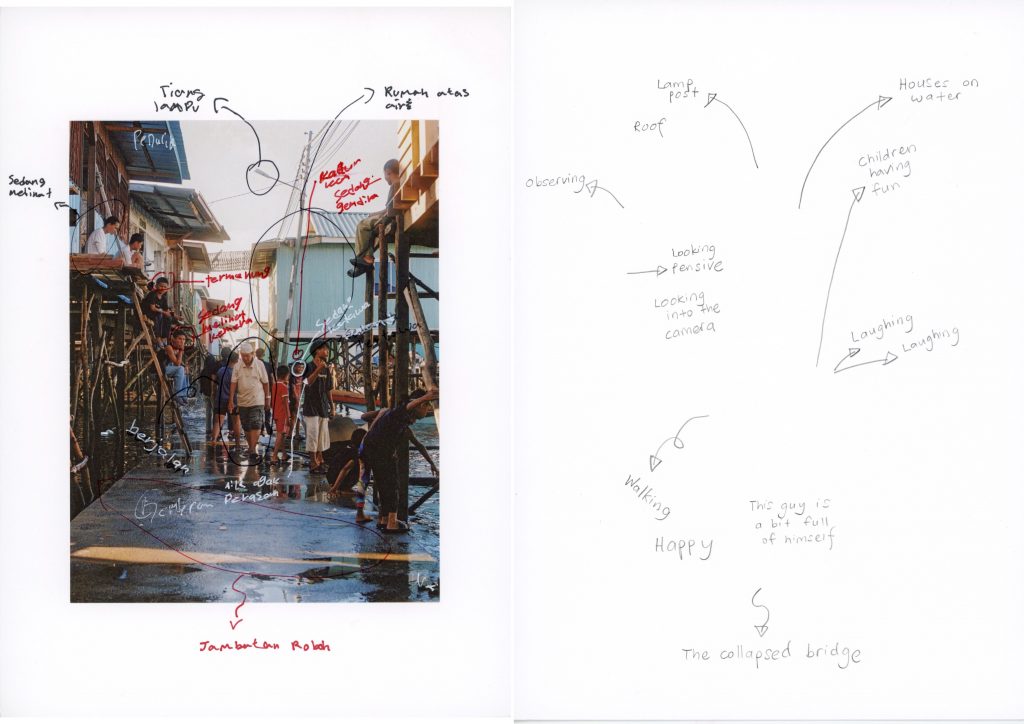 Tiang
lampu
Rumah atas
air
Sedang
melihat
termenung
Sedang
melihat
kamera
Sedang
gembira
berjalan
Jambatan Roboh
Lamp
post
Roof
Houses on
water
Observing
Children
having
fun
Looking
pensive
Looking
into the
camera
Laughing
Laughing
Walking
Happy
This guy is
a bit full
of himself
The collapsed bridge